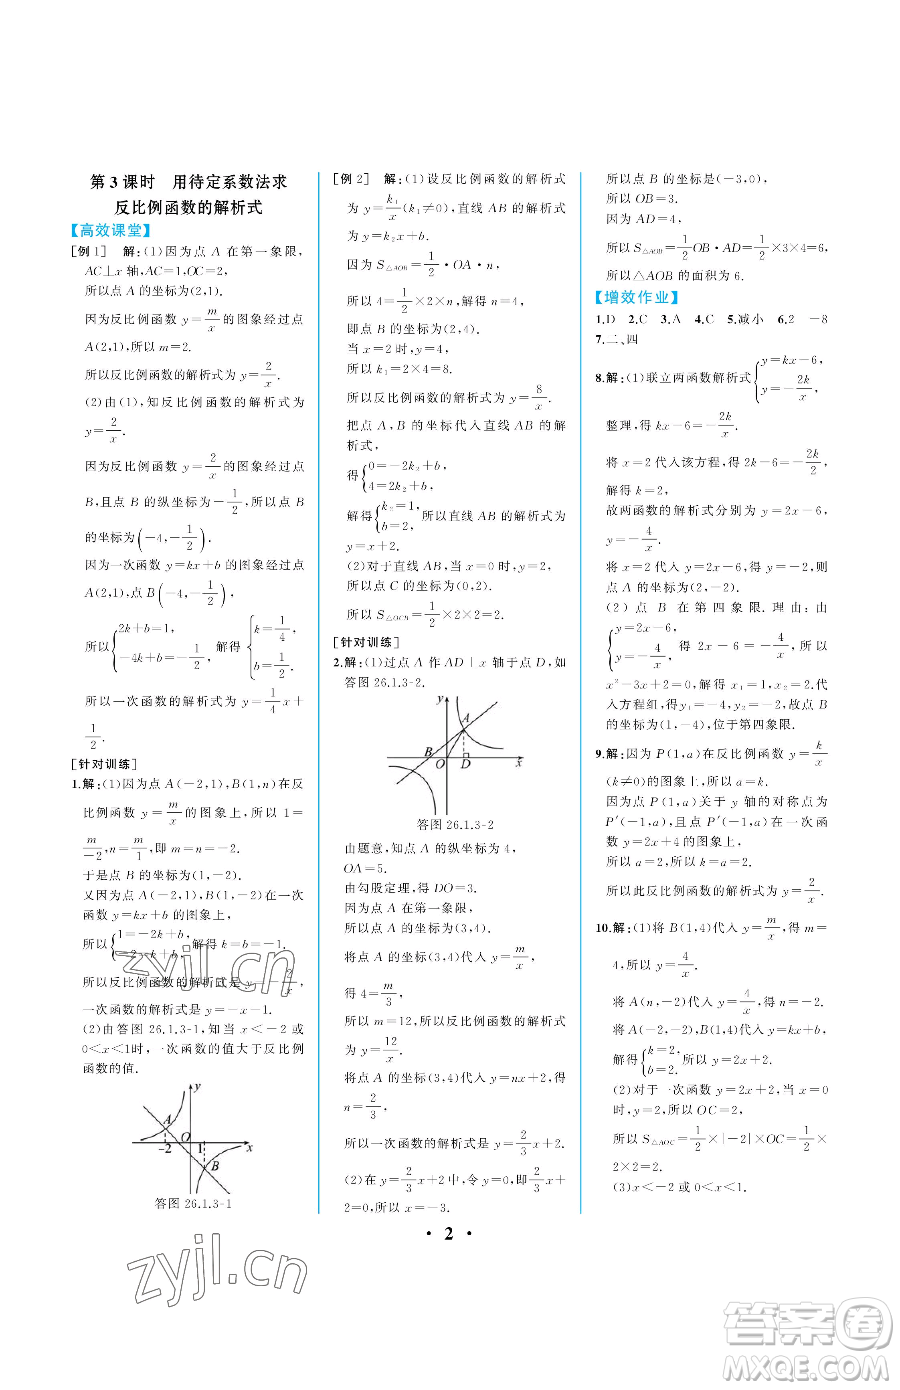 第 3 课时　用待定系数法求
反比例函数的解析式
【高效课堂】
[例 1]　解:(1)因为点 A 在第一象限,
AC⊥x 轴,AC=1,OC=2,
所以点 A 的坐标为(2,1).
因为反比例函数 y=m/x 的图象经过点
A(2,1),所以 m=2.
所以反比例函数的解析式为 y=2/x.
(2)由(1),知反比例函数的解析式为
y=2/x.
因为反比例函数 y=2/x 的图象经过点
B,且点 B 的纵坐标为-1/2,所以点 B
的坐标为(-4,-1/2).
因为一次函数 y=kx+b 的图象经过点
A(2,1),点 B(-4,-1/2),
所以{2k+b=1, -4k+b=-1/2, 解得{k=1/4, b=1/2.
所以一次函数的解析式为 y=1/4x+
1/2.
[针对训练]
1.解:(1)因为点 A(-2,1),B(1,n)在反
比例函数 y=m/x 的图象上,所以 1=
m/-2,n=m/1,所以 m=n=-2.
于是点 B 的坐标为(1,-2).
又因为点 A(-2,1),B(1,-2)在一次
函数 y=kx+b 的图象上,
所以{1=-2k+b, -2=k+b, 解得{k=-1, b=-1.
所以反比例函数的解析式是 y=-2/x,
一次函数的解析式是 y=-x-1.
(2)由答图 26.1.3-1,知当 x<-2 或
0<x<1时,一次函数的值大于反比例
函数的值.
y
A
O
1
x
-2
B
答图 26.1.3-1
[例 2]　解:(1)设反比例函数的解析式
为 y=k₁/x(k₁≠0),直线 AB 的解析式
为 y=k₂x+b.
因为 S△AOB=1/2·OA·n,
所以 4=1/2×2×n,解得 n=4,
即点 B 的坐标为(2,4).
当 x=2 时,k₁=2×4=8.
所以反比例函数的解析式为 y=8/x.
把点 A,B 的坐标代入直线 AB 的解
析式,
得{0=-2k₂+b, 4=2k₂+b,
解得{k₂=1, b=2, 所以直线 AB 的解析式为
y=x+2.
(2)对于直线 AB,当 x=0 时,y=2,
所以点 C 的坐标为(0,2).
所以 S△OCB=1/2×2×2=2.
[针对训练]
2.解:(1)过点 A 作 AD⊥x 轴于点 D,如
答图 26.1.3-2.
y
A
B
O
D
x
答图 26.1.3-2
由题意,知点 A 的纵坐标为 4,
OA=5.
由勾股定理,得 DO=3.
因为点 A 在第一象限,
所以点 A 的坐标为(3,4).
将点 A 的坐标(3,4)代入 y=m/x,
得 4=m/3,
所以 m=12,所以反比例函数的解析式
为 y=12/x.
将点 A 的坐标(3,4)代入 y=nx+2,得
n=2/3,
所以一次函数的解析式是 y=2/3x+2.
(2)在 y=2/3x+2 中,令 y=0,即 2/3x+
2=0,所以 x=-3.
所以点 B 的坐标为(-3,0),
所以 OB=3.
因为 AD=4,
所以 S△AOB=1/2OB·AD=1/2×3×4=6,
所以△AOB 的面积为 6.
【增效作业】
1.D　2.C　3.A　4.C　5.减小　6.2　-8
7.二、四
8.解:(1)联立两函数解析式{y=kx-6, y=-2k/x,
整理,得 kx-6=-2k/x.
将 x=2 代入该方程,得 2k-6=-2k/2,
解得 k=2,
故两函数的解析式分别为 y=2x-6,
y=-4/x.
将 x=2 代入 y=2x-6,得 y=-2,则
点 A 的坐标为(2,-2).
(2)点 B 在第四象限.理由:由
{y=2x-6, y=-4/x, 得 2x-6=-4/x,所以
x²-3x+2=0,解得 x₁=1,x₂=2.代
入方程组,得y₁=-4,y₂=-2,故点 B
的坐标为(1,-4),位于第四象限.
9.解:因为 P(1,a)在反比例函数 y=k/x
(k≠0)的图象上,所以 a=k.
因为点 P(1,a)关于 y 轴的对称点为
P′(-1,a),且点 P′(-1,a)在一次函
数 y=2x+4 的图象上,
所以 a=2,所以 k=2,
所以此反比例函数的解析式为 y=2/x.
10.解:(1)将 B(1,4)代入 y=m/x,得 m=
4,所以 y=4/x.
将 A(n,-2)代入 y=4/x,得 n=-2.
将 A(-2,-2),B(1,4)代入 y=kx+b,
解得{k=2, b=2.
(2)对于一次函数 y=2x+2,当 x=0
时,y=2,所以 OC=2,
所以 S△AOC=1/2×|-2|×OC=1/2×
2×2=2.
(3)x<-2 或 0<x<1.
· 2 ·
zyjl.cn
zyjl.cn
答案圈
MXQE.COM